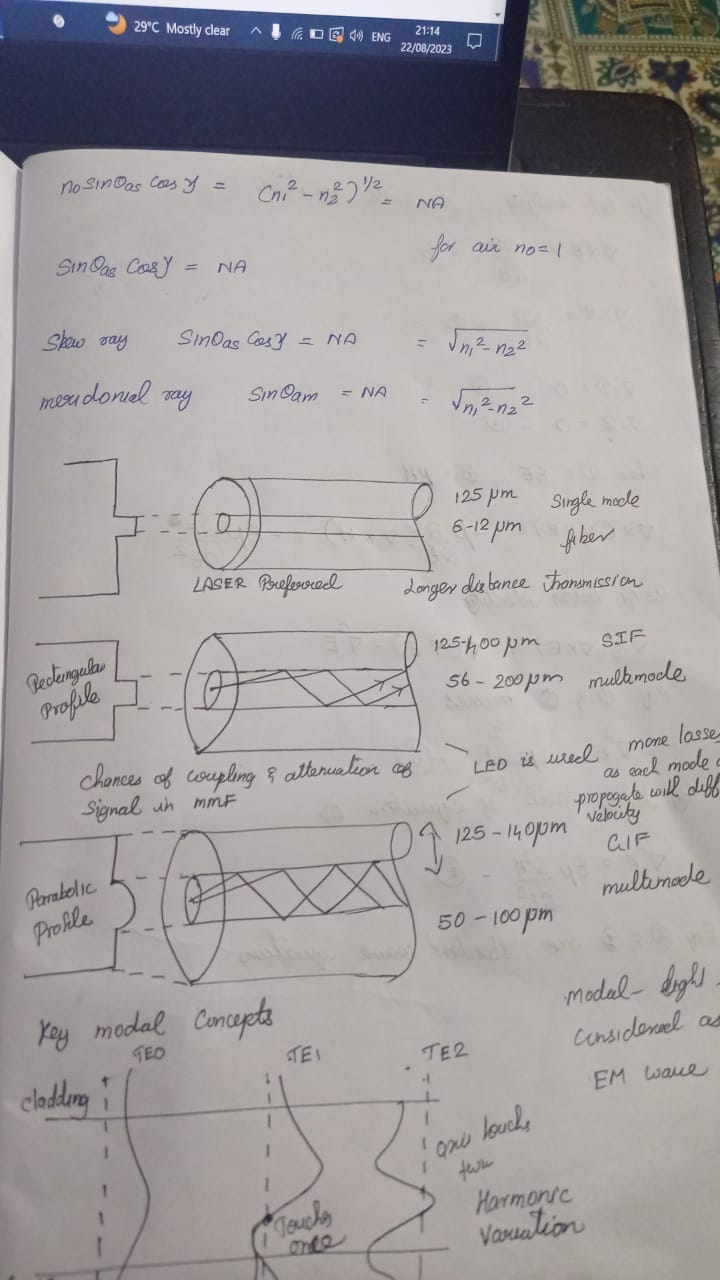 29°C Mostly clear
ENG
21:14
22/08/2023
no sinθas Cos γ = (n₁² - n₂²)^1/2 = NA
for air no = 1
Sinθas Cos γ = NA
Skew ray Sinθas Cos γ = NA = √n₁² - n₂²
meridonial ray Sinθam = NA = √n₁² - n₂²
125 μm Single mode
6-12 μm fiber
LASER Preferred Longer distance transmission
Rectangular
Profile
125-400 μm SIF
56 - 200 μm multimode
Chances of coupling & attenuation of
Signal in MMF
LED is used more losse
as each mode
propogate with diff
velocity
125 - 140 μm GIF
multimode
50 - 100 μm
Parabolic
Profile
Key modal Concepts
modal - light
Considered as
EM wave
TE0 TE1 TE2
cladding
axis touchs
Touchs
once
Harmonic
Variation